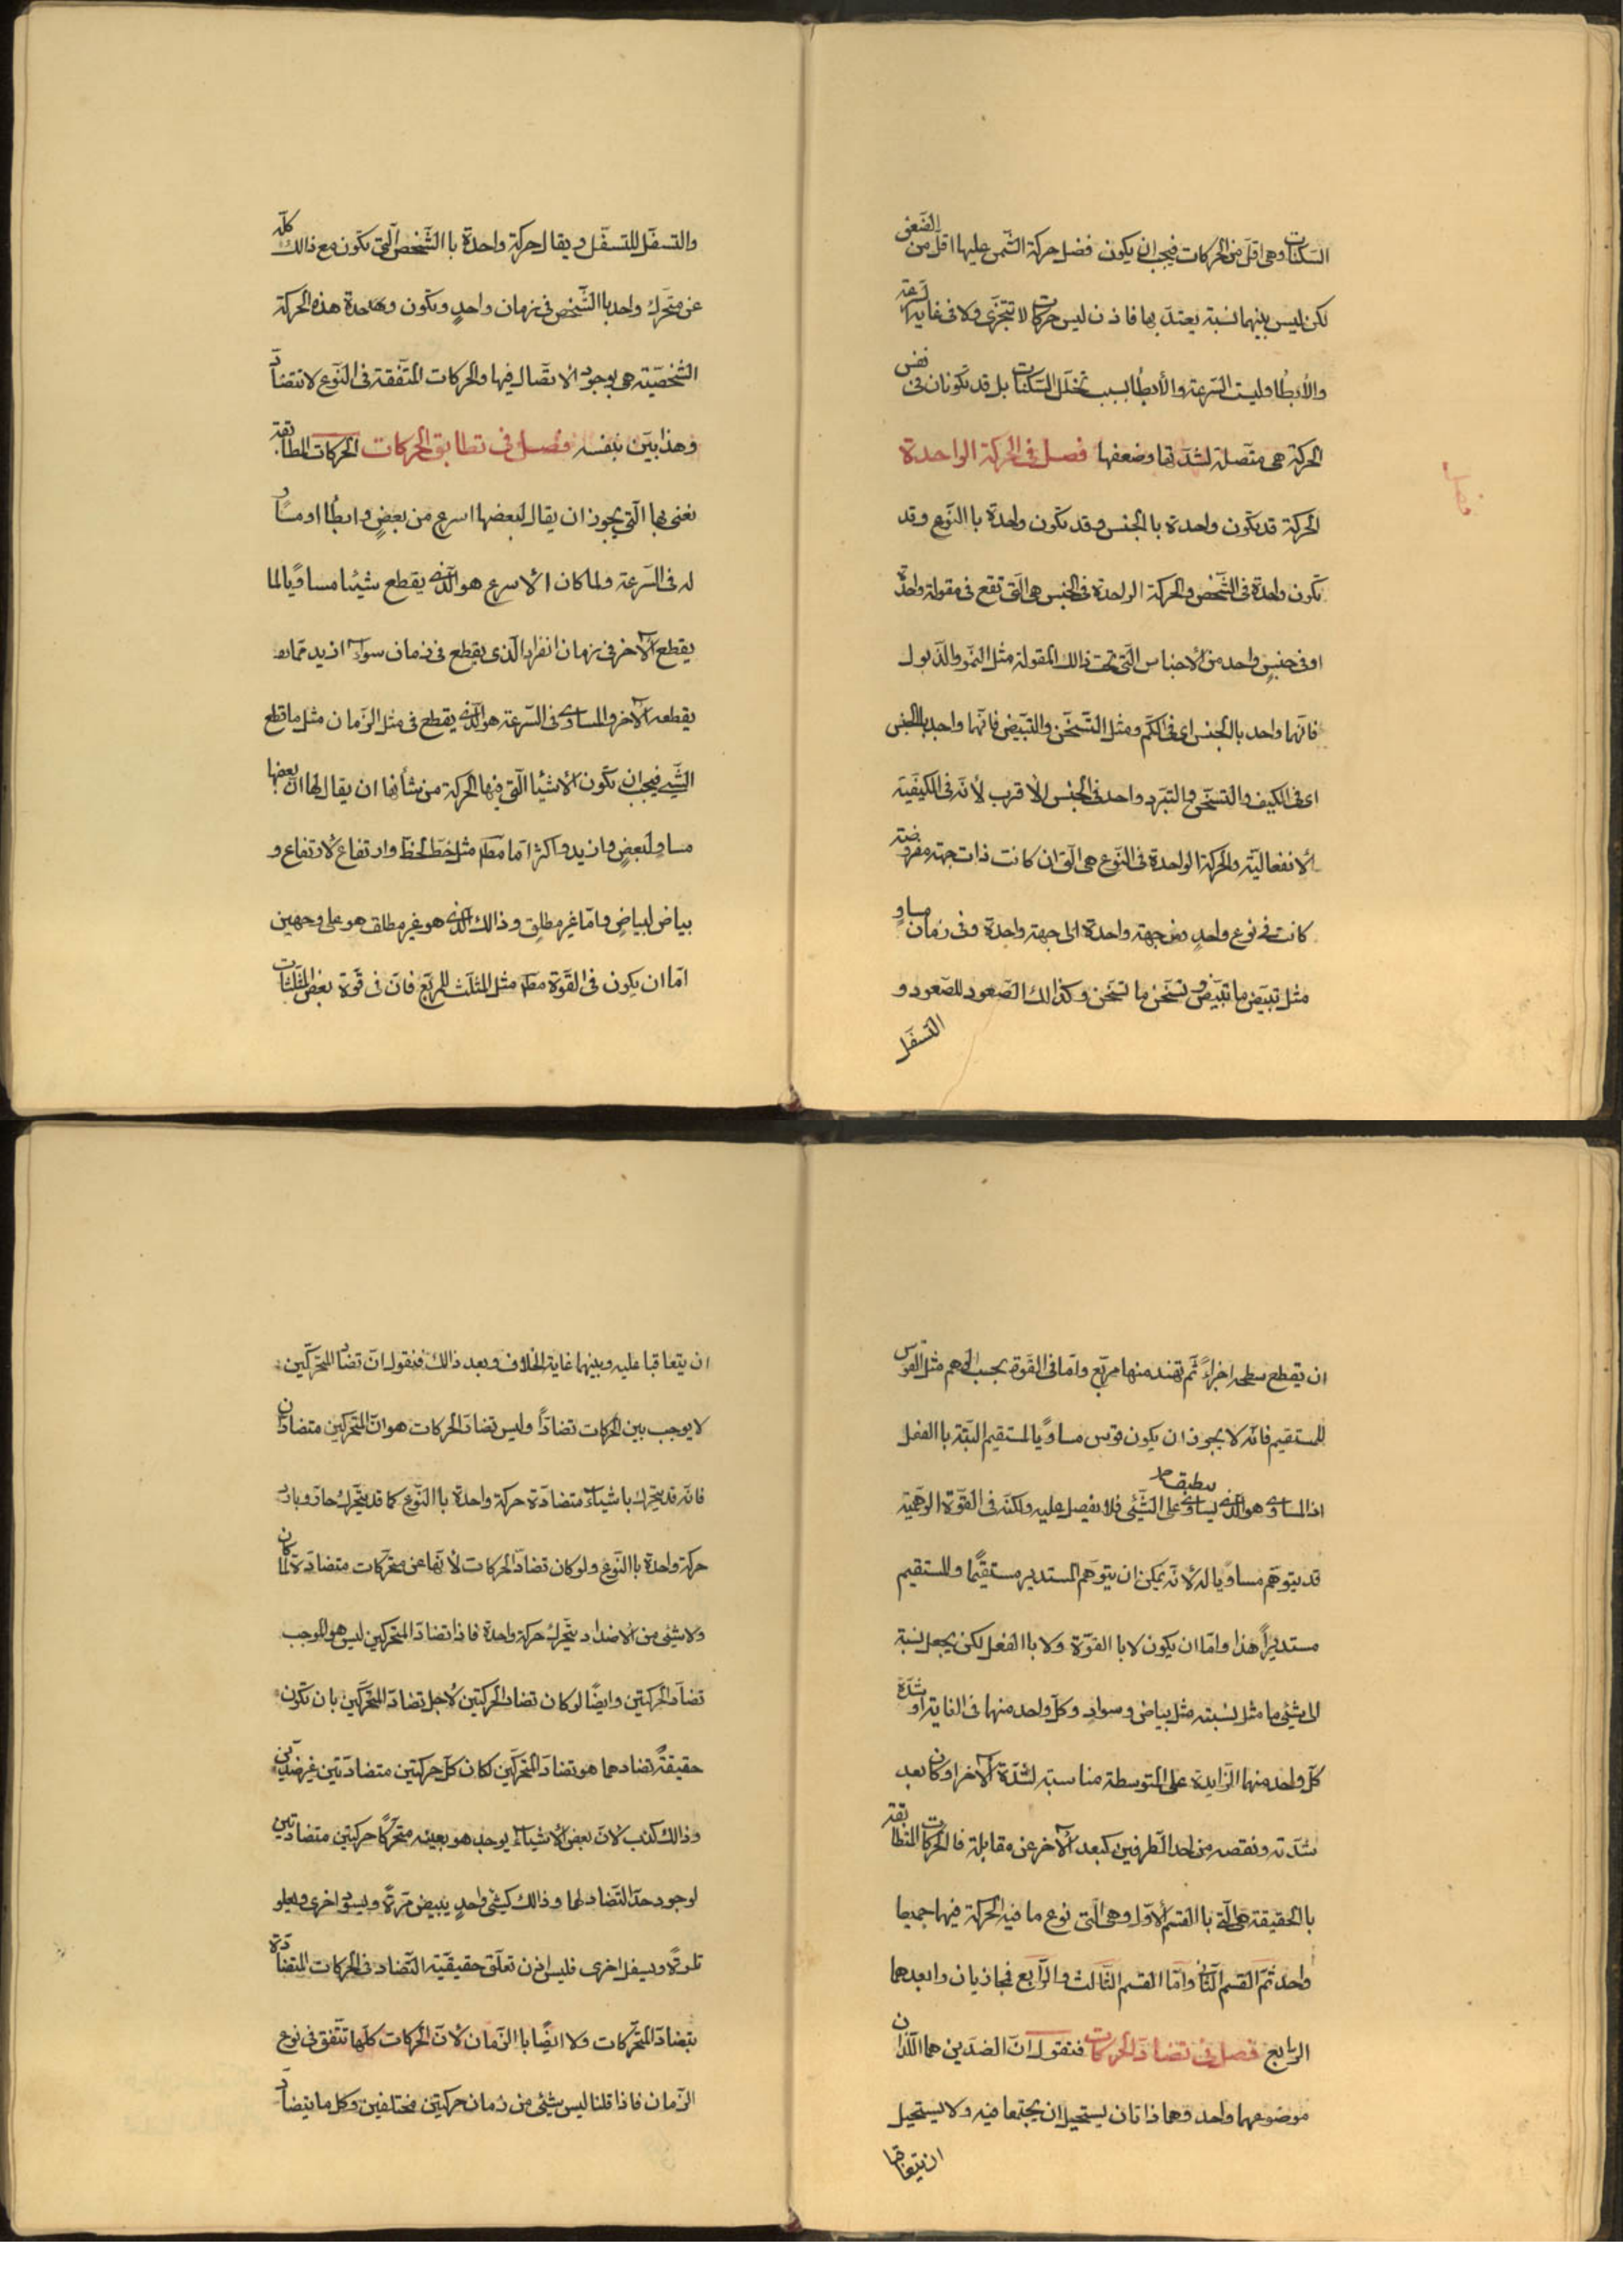 السّكنات وهى اقلّ من الحركات فيجب ان يكون فضل حركة الشّمس عليها اقل من الضّعف
لكن ليس بينهما نسبة يعتدّ بها فاذن ليس حركات لا تتجزّى ولا فى غاية السّرعة
والأبطُا وليست السّرعة والأبطُا بسبب تخلّل السّكنات بل قد تكونان فى نفس
الحركة هى متّصلة لشدّتها وضعفها فصل فى الحركة الواحدة
فصل
الحركة قد يكون واحدة باالجنس وقد تكون واحدة باالنّوع وقد
تكون واحدة فى الشّخص والحركة الواحدة فى الجنس هى الّتى تقع فى مقولة واحدة
او فى جنسٍ واحد من الأجناس الّتى تحت ذالك المقولة مثل النموّ والذّبول
فانّها واحد بالجنس اى فى الكمّ ومثل التّسخّن والتّبيّض فانّها واحد باالجنس
اى فى الكيف والتسخّن والتبرّد واحد فى الجنس الأقرب لأنّه فى الكيفيّة
الأنفعاليّة والحركة الواحدة فى النّوع هى الّتى ان كانت ذات جهة مفروضة
كانت فى نوع واحدٍ من جهة واحدة الى جهة واحدة وفى زمان مساوٍ
مثل تبيّض ما تبيّض وتسخّن ما تسخّن وكذالك الصّعود للصّعود و
التسفّل
والتسفّل للتسفّل ويقال حركة واحدة باالشّخص الّتى تكون مع ذالك كلّه
عن متحّرك واحد باالشّخص فى زمان واحدٍ وتكون وحدة هذه الحركة
الشّخصيّة هى بوجود الاتّصال فيها والحركات المتّفقة فى النّوع لا تتضادّ
وهذا بيّن بنفسه فصل فى تطابق الحركات الحركات المطابقة
نعنى بها الّتى يجوز ان يقال لبعضها اسرع من بعضٍ وابطُا او مساو
له فى السّرعة ولما كان الأسرع هو الّذى يقطع شيئا مساوًيا لما
يقطع الآخر فى زمان الّذى يقطع فى زمان سواء ازيد ممّا
يقطعه الآخر والمساوى فى السّرعة هو الّذى يقطع فى مثل الزّمان مثل ما قطع
الشّىء فيجب ان تكون الأشياء الّتى فيها الحركة من شأنها ان يقال لها انّ بعضها
مساوٍ لبعضٍ وازيد واكثر امّا مط مثل خطّ لخطّ وارتفاع لارتفاع و
بياض لبياضٍ وامّا غير مطلق وذالك الّذى هو غير مطلق هو على وجهين
امّا ان يكون فى القوّة مثل المثلّث للمربّع فانّ فى قوّة بعض المثلّثات
ان يقطع سطحه اجزاءً ثمّ تهند منها مربّع وامّا فى القوة بحسب الوهم مثل القوس
للمستقيم فانّه لا يجوز ان يكون قوس مساوًيا لمستقيم البتّة باالفعل
اذ المساوى هو الّذى يساوى ينطبق على الشّئى فلا يفصل عليه ولكنّه فى القوّة الوهميّة
قد يتوهّم مساوًيا له لأنّه يمكن ان يتوّهم المستدير مستقيًما والمستقيم
مستديرًا هذا وامّا ان يكون لا باالقوّة ولا باالفعل لكن يجعل نسبة
الى شئى ما مثل نسبته مثل بياض وسواد وكلّ واحد منها فى الغاية او شدّة
كلّ واحد منها الزّايدة على المتوسطة مناسبة لشدّة الآخر او كان بعد
شدّته ونقصه من احد الطّرفين كبعد الآخر عن مقابلة فالحركات المتطابقة
بالحقيقة هى الّتى باالقسم الأوّل وهى الّتى نوع ما فيه الحركة فيها جميعا
واحد ثمّ القسم الثّانى وامّا القسم الثّالث والرّابع فمجازيان وابعدهما
الرّابع فصل فى تضادّ الحركات فنقول انّ الضدّين هما اللّذان
موضوعهما واحد وهما ذاتان يستحيل ان يجتمعا فيه ولا يستحيل
ان يتعاقبا
ان يتعاقبا عليه وبينهما غاية الخلاف وبعد ذالك فنقول انّ تضادّ المتحّركين
لا يوجب بين الحركات تضادّاً وليس تضادّ الحركات هو انّ المتحّركين متضادّان
فانّه قد يتحّرك باشياء متضادّة حركة واحدة باالنّوع كما قد يتحّرك حارّ وبارد
حركة واحدة باالنّوع ولو كان تضادّ الحركات لأنّها عن متحّركات متضادّة لما كان
ولا شئى من الأضداد يتحّرك حركة واحدة فاذا تضادّ المتحّركين ليس هو الموجب
تضادّ الحركتين وايضًا لو كان تضادّ الحركتين لأجل تضادّ المتحّركين بان تكون
حقيقة تضادهما هو تضادّ المتحّركين لكان كلّ حركتين متضادّتين غير ضدّين
وذالك كذب لانّ بعض الأشياء يوجد هو بعينه متحّركًا حركتين متضادّتين
لوجود حدّ التّضاد لها وذالك كشئى واحدٍ يبيض مرّةً ويسود اخرى ويعلو
تارةً ويسفل اخرى فليس اذن تعلّق حقيقيّة التّضاد فى الحركات المتضادّة
بتضادّ المتحّركات ولا ايضًا باالزّمان لأنّ الحركات كلّها تتّفق فى نوع
الزّمان فاذا قلنا ليس شئى من زمان حركتين مختلفين وكل ما يتضادّ